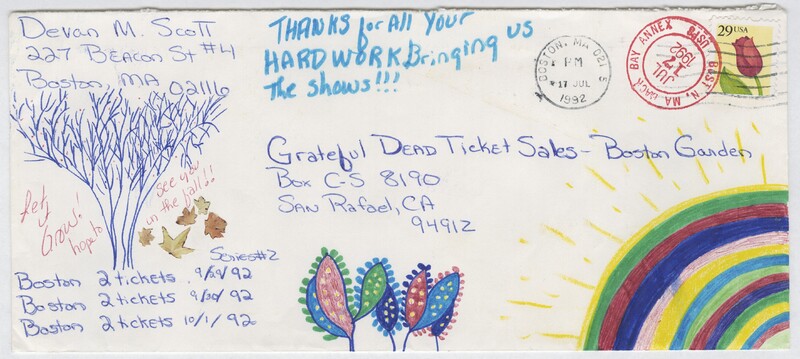 Devan M. Scott
227 Beacon St #4
Boston, MA
02116
THANKS for All Your
HARD WORK Bringing us
The shows!!!
BOSTON, MA
PM
17 JUL
1992
BACK BAY ANNEX USPS BOSTN, MA
JUL
17
1992
29USA
Grateful Dead Ticket Sales - Boston Garden
Box C-S 8190
San Rafael, CA
94912
Let
Grow!
hope to
see you
in the fall!!
Series #2
Boston 2 tickets 9/29/92
Boston 2 tickets 9/30/92
Boston 2 tickets 10/1/92